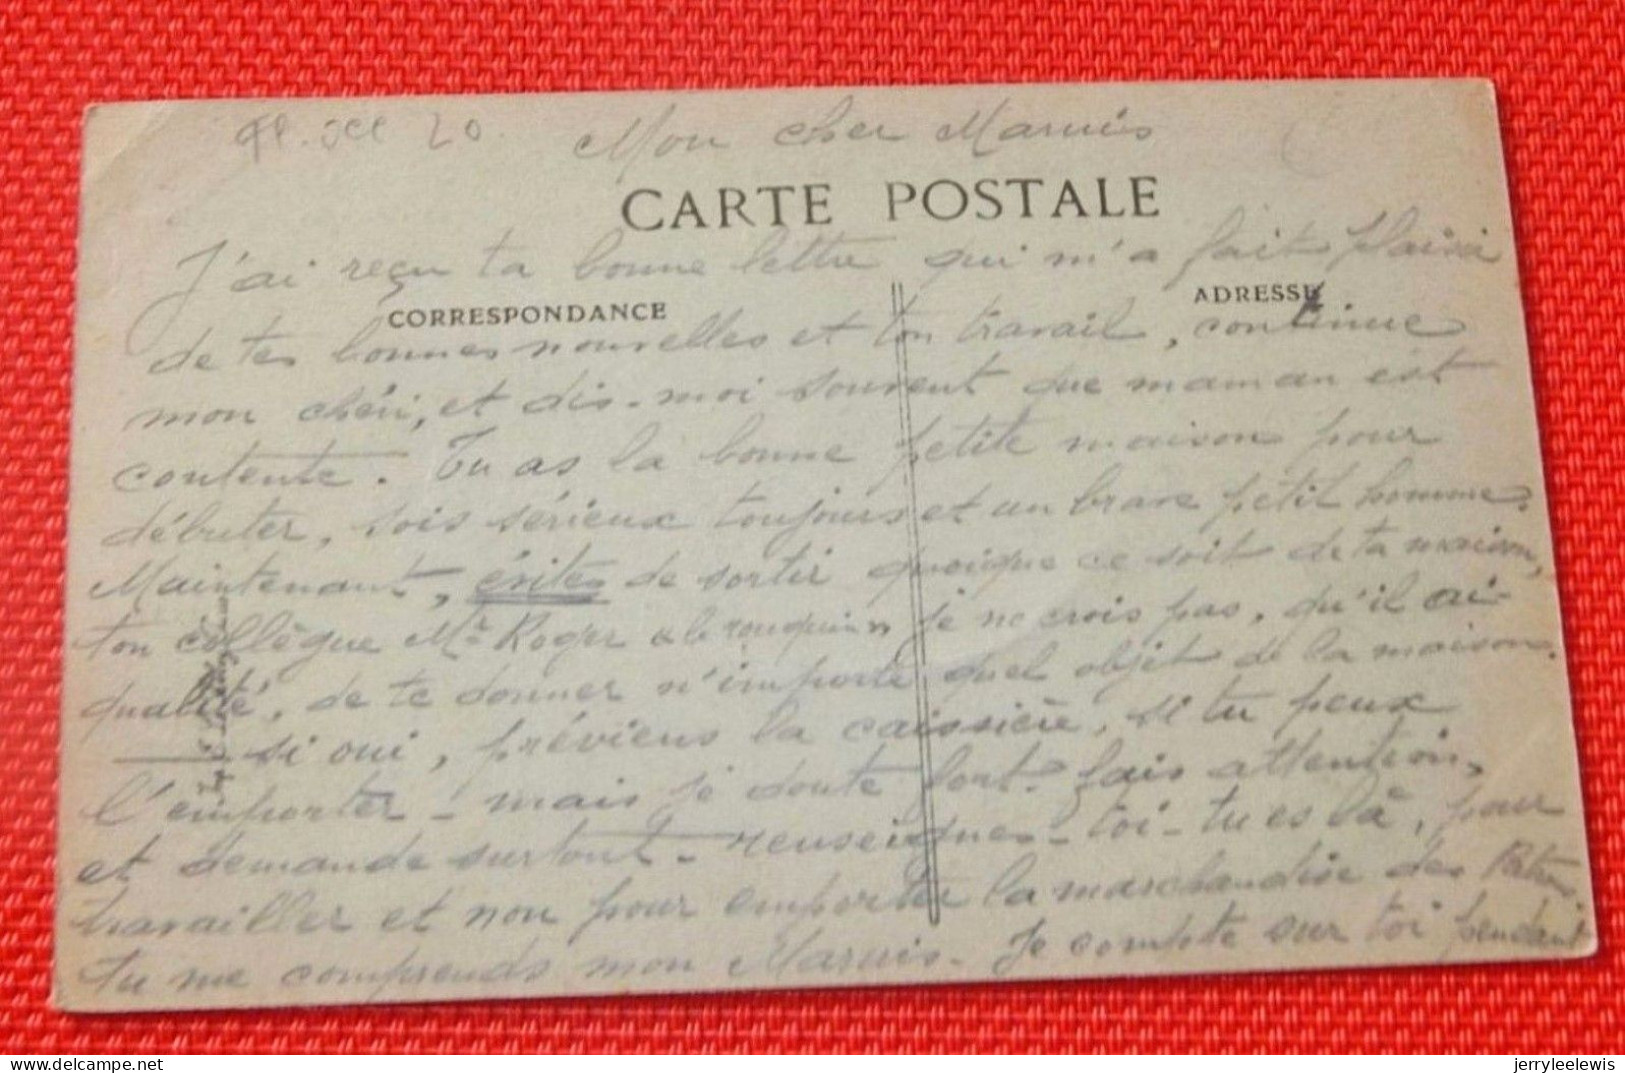 Oct 20.
Mon cher Marius
CARTE POSTALE
J'ai reçu ta bonne lettre qui m'a fait plaisir
CORRESPONDANCE
ADRESSE
de tes bonnes nouvelles et ton travail, continue
mon chéri, et dis-moi souvent que maman est
contente. Tu as la bonne petite maison pour
débuter, sois sérieux toujours et un brave petit homme.
Maintenant, évites de sortir quoique ce soit de ta maison,
ton collègue Mr Roger & le rouquin, je ne crois pas, qu'il ai-
qualité, de te donner n'importe quel objet de la maison.
— si oui, préviens la caissière, si tu peux
l'emporter - mais je doute fort. fais attention,
et demande surtout - renseignes-toi - tu es là, pour
travailler et non pour emporter la marchandise des Patrons
tu me comprends mon Marius. Je compte sur toi pendant
delcampe.net
jerryleelewis